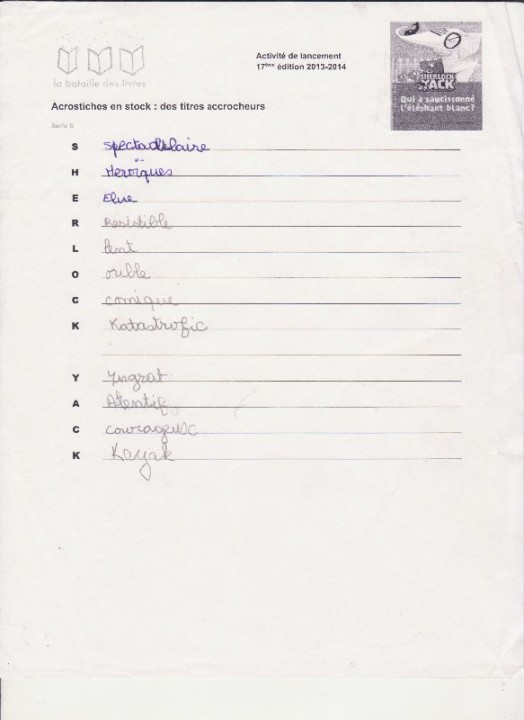 la bataille des livres
Activité de lancement
17ème édition 2013-2014
SHERLOCK
YACK
Qui a saucissonné
l'éléphant blanc?
Acrostiches en stock : des titres accrocheurs
Série 6
S spectaculaire
H Héroïques
E Elue
R Resistible
L Lent
O orible
C comique
K Katastrofic
Y Yngrat
A Atentif
C courageux
K Kayak